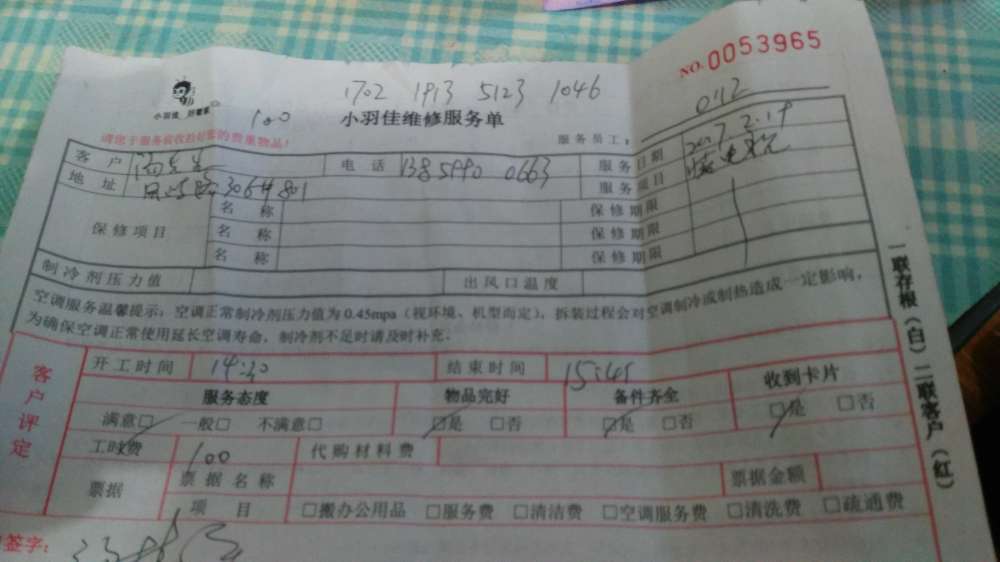 NO. 0053965
1702 1913 5123 1046
小羽佳 好管家
100
小羽佳维修服务单
服务员工：
012
请您于服务前收拾好您的贵重物品！
客户
电话 138 5990 0663
服务日期 2017.2.19
地址 306# 801
服务项目
保修项目
名称 保修期限
名称 保修期限
名称 保修期限
制冷剂压力值 出风口温度
空调服务温馨提示：空调正常制冷剂压力值为0.45mpa（视环境、机型而定），拆装过程会对空调制冷或制热造成一定影响，
为确保空调正常使用延长空调寿命，制冷剂不足时请及时补充.
一联存根（白）二联客户（红）
客户评定
开工时间 14:30 结束时间 15:45
服务态度 物品完好 备件齐全 收到卡片
满意□ 一般□ 不满意□ □是 □否 □是 □否 □是 □否
工时费 100 代购材料费
票据
票据名称 票据金额
项目 □搬办公用品 □服务费 □清洁费 □空调服务费 □清洗费 □疏通费
签字：